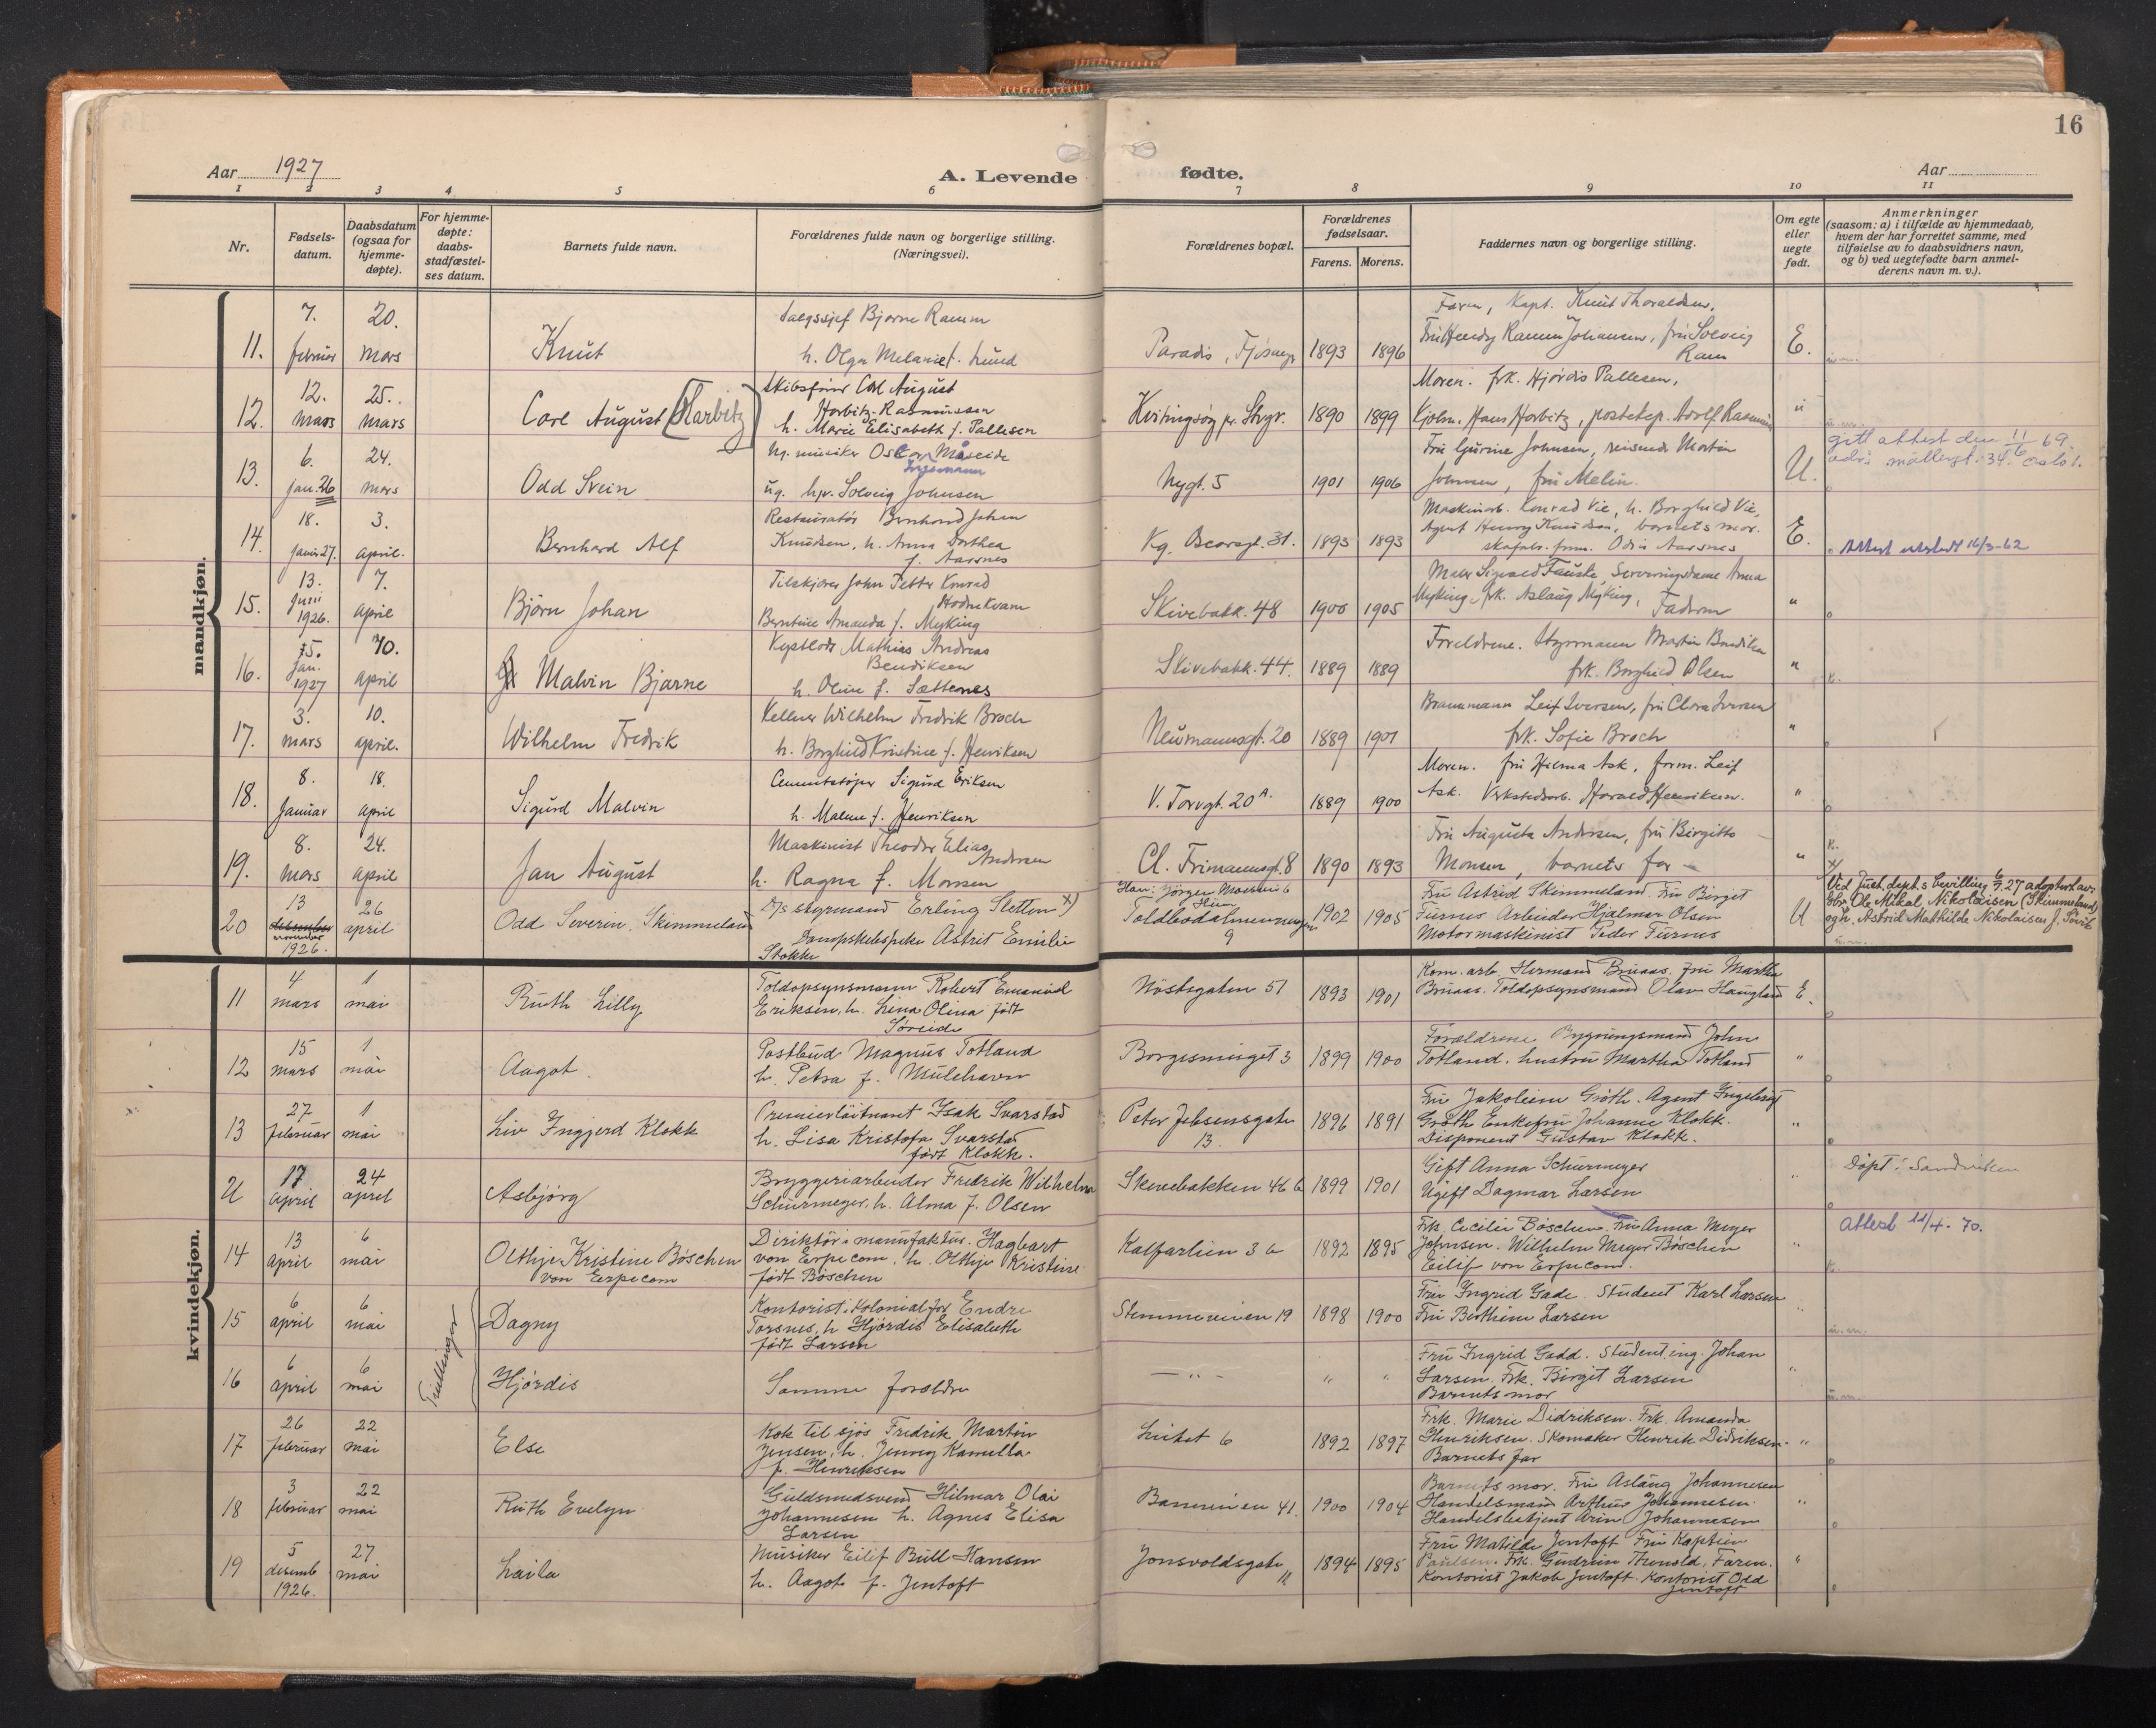 16
Aar 1927
A. Levende
fødte.
Aar
1 2 3 4 5 6 7 8 9 10 11
Nr.
Fødsels-
datum.
Daabsdatum
(ogsaa for
hjemme-
døpte).
For hjemme-
døpte:
daabs-
stadfæstel-
ses datum.
Barnets fulde navn.
Forældrenes fulde navn og borgerlige stilling.
(Næringsvei).
Forældrenes bopæl.
Forældrenes
fødselsaar.
Farens. Morens.
Faddernes navn og borgerlige stilling.
Om egte
eller
uegte
født.
Anmerkninger
(saasom: a) i tilfælde av hjemmedaab,
hvem der har forrettet samme, med
tilføielse av to daabsvidners navn,
og b) ved uegtefødte barn anmel-
derens navn m. v.).
mandkjøn.
11.
7.
februar
20.
mars
Knut
Salgssjef Bjarne Ramm
h. Olga Melanie f. Lund
Paradis, Fjøsanger
1893 1896
Faren, Kapt. Knut Thoraldsen,
Fru Hendy Ramm Johansen, fru Solveig
Ram
E.
12.
12.
mars
25.
mars
Carl August [Harbitz]
Skibsfører Carl August
Harbitz-Rasmussen
h. Marie Elisabeth f. Pallesen
Kvitingsøy pr. Stvgr.
1890 1899
Moren. frk. Hjørdis Pallesen,
Kjøbm. Hans Harbitz, posteksp. Adolf
"
13.
6.
jan. 26
24.
mars
Odd Svein
Ug. musiker Oscar Måseide
Ingemann
ug. hpr. Solveig Johnsen
Nygt. 5
1901 1906
Fru Gurine Johnsen, reisende Martin
Johnsen, fru Melin.
U.
gitt attest den 11/6 69.
adr: møllergt. 34. Oslo 1.
14.
18.
janr 27.
3.
april.
Bernhard Alf
Restauratør Bernhard Johan
Knudsen, h. Anna Dorthea
f. Aarsnes
Kg. Oscarsgt. 31.
1893 1893
Maskinarb. Konrad Vie, h. Borghild Vie,
Agent Henry Knudsen, barnets mor.
Odin Aarsnes
E.
Attest utstedt 16/3-62
15.
13.
juni
1926.
7.
april
Bjørn Johan
Tilskjærer John Petter Konrad
Hodnekvam
Berntine Amanda f. Myking
Skivebakk. 48
1900 1905
Maler Sigvald Fauske, Serveringsdame Anna
Myking, frk. Aslaug Myking, Faderen
"
16.
15.
Jan.
1927
10.
april
Malvin Bjarne
Kystlods Mathias Andreas
Bendiksen
h. Oline f. Sætternes
Skivebakk. 44.
1889 1889
Foreldrene. Styrmann Martin Bendiksen
frk. Borghild Olsen
"
17.
3.
mars
10.
april.
Wilhelm Fredrik
Kellner Wilhelm Fredrik Broch
h. Borghild Kristine f. Henriksen
Neumannsgt. 20
1889 1901
Brannmann Leif Iversen, fru Clara Iversen
frk. Sofie Broch
"
18.
8.
Januar
18.
april
Sigurd Malvin
Cementstøper Sigurd Eriksen
h. Malene f. Henriksen
V. Torvgt. 20 A.
1889 1900
Moren. fru Hilma Ask, form. Leif
Ask. Verkstedsarb. Harald Henriksen.
"
19.
8.
Mars
24.
april
Jan August
Maskinist Theodor Elias
Andersen
h. Ragna f. Monsen
Cl. Frimannsgt. 8
1890 1893
Fru Augusta Andersen, fru Birgitte
Monsen, barnets far
"
20
13
desember
november
1926.
26
april
Odd Severin, Skimmeland
styrmand Erling Sletten x)
Dampskibspike Astrit Emilie
Stokke
Han: Jørgen Moestue 6
Hun
Toldbodalmenningen
9
1902 1905
Fru Astrid Skimmeland. Fru Birgit
Furnes Arbeider Hjalmar Olsen
Motormaskinist Peder Furnes
U
x)
Ved Just. dept.s bevilling 6/7 27 adoptert av
Ole Mikal Nikolaisen (Skimmeland)
og h. Astrid Mathilde Nikolaisen f. Sørvik
kvindekjøn.
11
4
mars
1
mai
Ruth Lilly
Toldopsynsmann Robert Emanuel
Eriksen, h. Lina Olina født
Søreide
Nøstegaten 51
1893 1901
Kom. arb. Hermand Bruaas. Fru Martha
Bruaas. Toldopsynsmand Olav Haugland
E.
12
15
mars
1
mai
Aagot.
Postbud Magnus Totland
h. Petra f. Mulehavn
Borgesmuget 3
1899 1900
Forældrene Bygningsmand John
Totland. hustru Martha Totland
"
13
27
februar
1
mai
Liv Ingjerd Klokk
Premierløitnant Isak Svarstad
h. Lisa Kristofa Svarstad
født Klokk.
Peter Jebsensgate
13.
1896 1891
Fru Jakobine Groth. Agent Ingebrigt
Groth Enkefru Johanne Klokk.
Disponent Gustav Klokk.
"
U
17
april
24
april
Asbjørg
Bryggeriarbeider Fredrik Wilhelm
Schürmeyer, h. Alma f. Olsen
Skivebakken 46 b
1899 1901
Gift Anna Schürmeyer
Ugift Dagmar Larsen
"
Døpt i Sandviken
14
13
april
6
mai
Olthje Kristine Böschen
von Erpecom
Direktør i manufaktur. Hagbart
von Erpecom, h. Olthje Kristine
født Böschen
Kalfarlien 3 b
1892 1895
Frk. Cecilie Böschen. Fru Anna Meyer
Johnsen. Wilhelm Meyer Böschen
Eilif von Erpecom.
"
attest 11/4-70.
15
6
april
6
mai
Trillinger
Dagny
Kontorist i kolonialfor. Endre
Torsnes, h. Hjørdis Elisabeth
født Larsen
Stemmeveien 19
1898 1900
Fru Ingrid Gade. Student Karl Larsen
Fru Berthine Larsen
"
16
6
april
6
mai
Hjørdis
Samme foreldre
— " —
" "
Fru Ingrid Gadd. Student. ing. Johan
Larsen. Frk. Birgit Larsen
Barnets mor
"
17
26
februar
22
mai
Else
Kok til sjøs Fredrik Martin
Jensen, h. Jenny Kamilla
f. Henriksen
Luitet 6
1892 1897
Frk. Marie Didriksen. Frk. Amanda
Henriksen. Skomaker Henrik Didriksen.
Barnets far
"
18
3
februar
22
mai
Ruth Evelyn
Guldsmedsvend Hilmar Olai
Johannesen h. Agnes Elisa
Larsen
Banevien 41.
1900 1904
Barnets mor. Fru Aslaug Johannesen
Handelsmann Arthur Johannesen.
Handelsbetjent Arin Johannesen
"
19
5
desemb
1926.
27
mai
Laila
Musiker Eilif Bull Hansen
h. Aagot f. Jentoft
Jonsvoldsgate
1894 1895
Fru Matilde Jentoft Fru Kaptein
Paulsen. Frk. Gudrun Thenold, Faren.
Kontorist Jakob Jentoft. Kontorist Odd
Jentoft
"